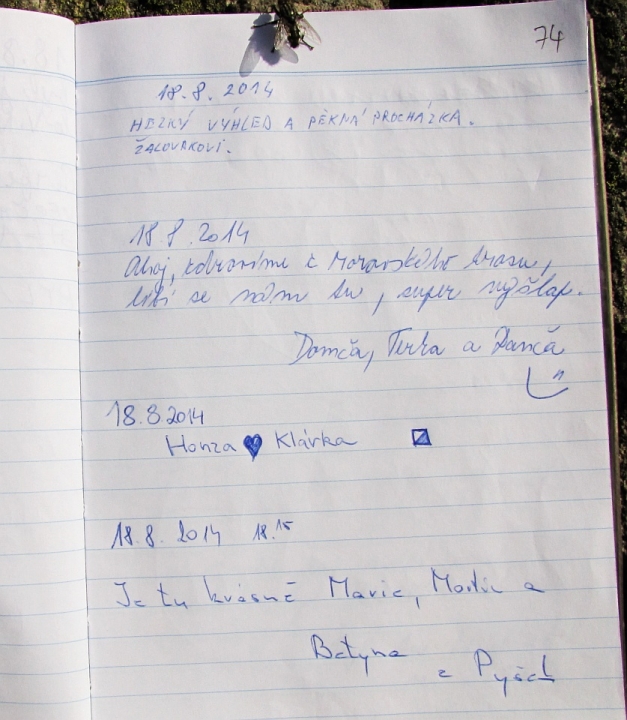 74
18.8.2014
HEZKÝ VÝHLED A PĚKNÁ PROCHÁZKA.
ŽALOUDKOVI.
18.8.2014
Ahoj, zdravíme z Moravského krasu,
líbí se nám tu, super výšlap.
Domča, Terka a
18.8.2014
Honza Klárka
18.8.2014 18.15
Je tu krásně Marie, Martin a
Betyna
z Pyšel